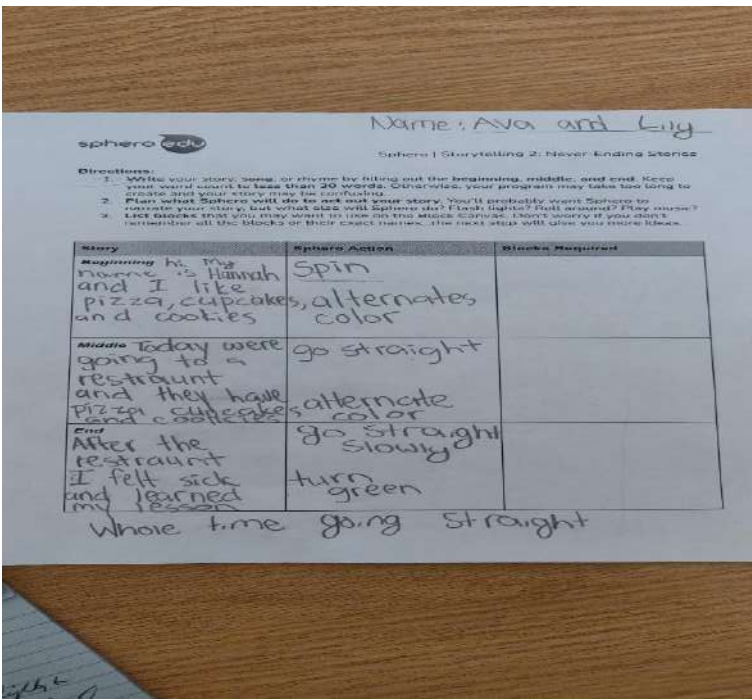 Name: Ava and Lily
sphero edu
Sphero | Storytelling 2: Never-Ending Stories
Directions:
1. Write your story, song, or rhyme by filling out the beginning, middle, and end. Keep
your word count to less than 30 words. Otherwise, your program may take too long to
create and your story may be confusing.
2. Plan what Sphero will do to act out your story. You'll probably want Sphero to
narrate your story, but what else will Sphero do? Flash lights? Roll around? Play music?
3. List blocks that you may want to use on the Block Canvas. Don't worry if you don't
remember all the blocks or their exact names...the next step will give you more ideas.
Story Sphero Action Blocks Required
Beginning hi. My
name is Hannah
and I like
pizza, cupcakes,
and cookies
Spin
alternates
color
Middle Today were
going to a
restraunt
and they have
pizza cupcakes
and cookies
go straight
alternate
color
End
After the
restraunt
I felt sick
and learned
my lesson
go straight
slowly
turn
green
Whole time going straight